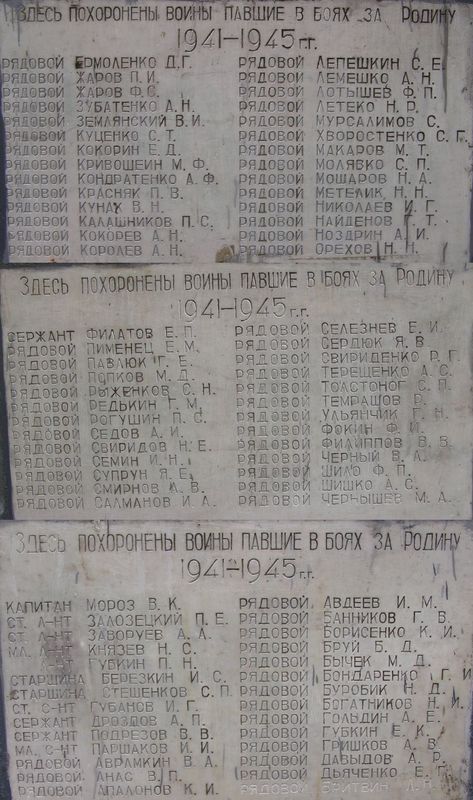 Здесь похоронены воины павшие в боях за Родину
1941–1945 г.г.
рядовой Ермоленко Д.Г.
рядовой Жаров П.И.
рядовой Жаров Ф.С.
рядовой Зубатенко А.Н.
рядовой Землянский В.И.
рядовой Куценко С.Т.
рядовой Кокорин Е.Д.
рядовой Кривошеин М.Ф.
рядовой Кондратенко А.Ф.
рядовой Красняк П.В.
рядовой Кунах В.Н.
рядовой Калашников П.С.
рядовой Кокорев А.Н.
рядовой Королев А.Н.
рядовой Лепешкин С.Е.
рядовой Лемешко А.Н.
рядовой Лотышев Ф.П.
рядовой Летеко Н.Р.
рядовой Мурсалимов С.
рядовой Хворостенко С.Г.
рядовой Макаров М.Т.
рядовой Молявко С.П.
рядовой Мошаров Н.А.
рядовой Метелик Н.Н.
рядовой Николаев И.Г.
рядовой Найденов Г.Т.
рядовой Ноздрин А.И.
рядовой Орехов Н.Н.
Здесь похоронены воины павшие в боях за Родину
1941–1945 г.г.
сержант Филатов Е.П.
рядовой Пименец Е.М.
рядовой Павлюк Г.Е.
рядовой Попков М.Д.
рядовой Рыженков С.Н.
рядовой Редькин Г.М.
рядовой Рогушин П.С.
рядовой Седов А.И.
рядовой Свиридов Н.Е.
рядовой Семин И.Н.
рядовой Супрун Я.Е.
рядовой Смирнов А.В.
рядовой Салманов И.А.
рядовой Селезнев Е.И.
рядовой Сердюк Я.В.
рядовой Свириденко Р.Г.
рядовой Терещенко А.С.
рядовой Толстоног С.П.
рядовой Темрашов Р.
рядовой Ульянчик Г.Н.
рядовой Фокин Ф.И.
рядовой Филиппов В.В.
рядовой Черный В.А.
рядовой Шило Ф.П.
рядовой Шишко А.С.
рядовой Чернышев М.А.
Здесь похоронены воины павшие в боях за Родину
1941–1945 г.г.
капитан Мороз В.К.
ст. л-нт Залозецкий П.Е.
ст. л-нт Заворуев А.А.
мл. л-нт Князев Н.С.
л-нт Губкин П.Н.
старшина Березкин И.С.
старшина Стешенков С.П.
ст. с-нт Губанов И.Г.
сержант Дроздов А.П.
сержант Подрезов В.В.
мл. с-нт Паршаков И.И.
рядовой Аврамкин В.А.
рядовой Анас В.П.
рядовой Апалонов К.И.
рядовой Авдеев И.М.
рядовой Банников Г.В.
рядовой Борисенко К.И.
рядовой Бруй Б.Д.
рядовой Бычек М.Д.
рядовой Бондаренко Г.И.
рядовой Буробик Н.Д.
рядовой Богатников Н.И.
рядовой Гольдин А.Е.
рядовой Губкин Е.К.
рядовой Гришков А.В.
рядовой Давыдов А.Р.
рядовой Дьяченко Е.Г.
рядовой Бритвин